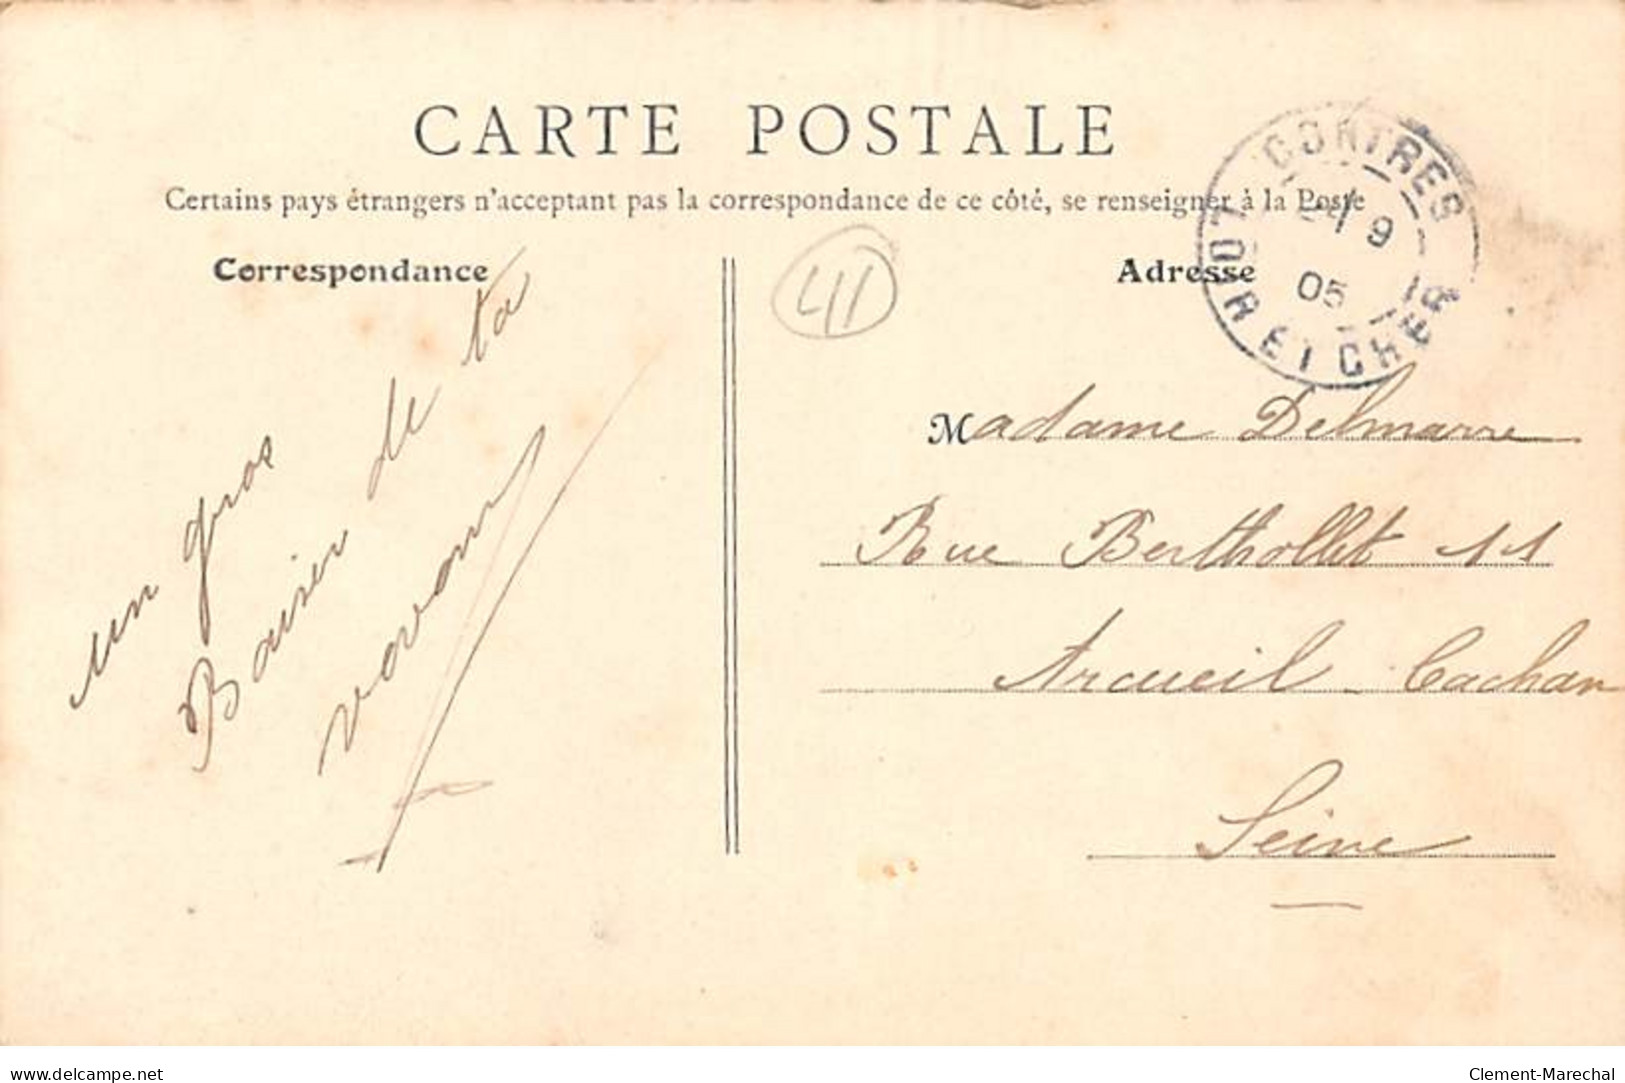 CARTE POSTALE
Certains pays étrangers n'acceptent pas la correspondance de ce côté, se renseigner à la Poste
Correspondance
Adresse
CONTRES
9
05
LOIR ET CHER
41
un gros
Baiser de ta
Madame Delmarre
Rue Berthollet 11
Arcueil Cachan
Seine
www.delcampe.net
Clement-Marechal